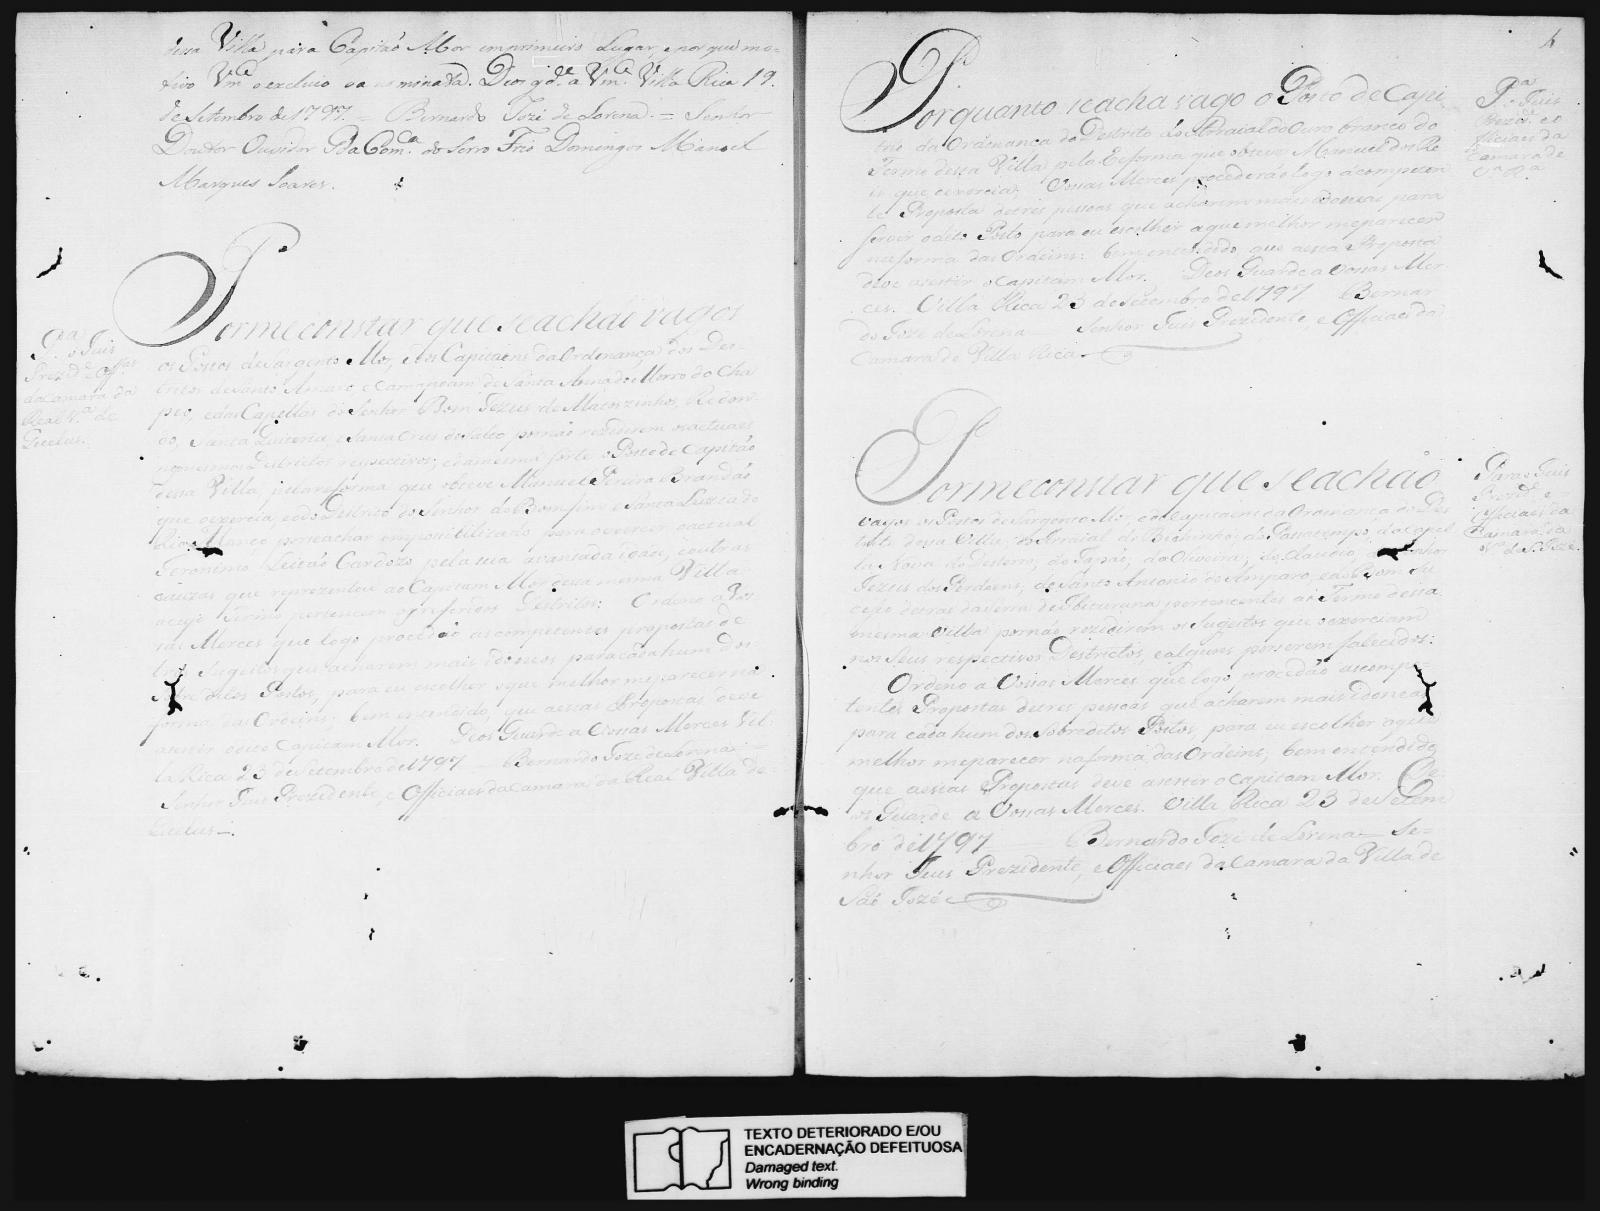 dessa Villa para Capitão Mor emprimeiro Lugar, e por que mo-
tivo Vm.ce o excluio da nominada. Deos g.de a Vm.ce Villa Rica 19.
de Setembro de 1797. = Bernardo Jozé de Lorena = Senhor
Doutor Ouvidor Da Com.ca do Serro Frio Domingos Manoel
Marques Soares.
P.a o Juis
Prezid.e e Off.es
da Camara da
Real V.a de
Queluz.
Por me constar que se achão vagos
os Postos de Sargento Mor, e dos Capitaens da Ordenança dos Des-
tritos de Santo Amaro e Camapoam de Santa Anna do Morro do Cha
peo, e das Capellas do Senhor Bom Jezus de Matozinhos, Redon-
do, Santa Quiteria, e Santa Crus do Salto por não rezidirem os actuaes
nos mesmos Destrictos respectivos; e da mesma sorte o Posto de Capitão
dessa Villa, pela reforma que obteve Manuel Pereira Brandão
que o exercia, e do Destrito do Senhor do Bomfim e Santa Luzia do
Rio Manco por se achar impossibilitado para exercer o actual
Jeronimo Leitão Cardozo pela sua avansada idade, e outras
cauzas que reprezentou ao Capitam Mor dessa mesma Villa
a cujo Termo pertencem os referidos Destritos: Ordeno a Vos-
sas Merces que logo procedão as competentes propostas de
tres Sugeitos que acharem mais idoneos para cada hum dos
sobre ditos Postos, para eu escolher o que melhor me parecer na
forma das Ordeins; bem entendido, que aessas Propostas deve
asestir o dito Capitam Mor. Deos Guarde a Vossas Merces Vil-
la Rica 23 de Setembro de 1797 = Bernardo Joze de Lorena =
Senhor Juis Prezidente, e Officiaes da Camara da Real Villa de
Queluz.
P.a o Juis
Prezid.e e O
fficiaes da
Camara de
V.a R.a
Porquanto se acha vago o Posto de Capi
tão da Ordenança do Destrito do Arraial do Ouro branco do
Termo dessa Villa pela Reforma que obteve Manuel dos Re
is que o exercia; Vossas Merces procederão logo a competen
te Proposta de tres pessoas que acharem mais idoneas para
servir o dito Posto para eu escolher a que melhor me parecer
na forma das Ordeins: bem entendido, que a esta Proposta
deve asestir o Capitam Mor. Deos Guarde a Vossas Mer
ces. Villa Rica 23 de Setembro de 1797 Bernar
do Joze de Lorena Senhor Juis Prezidente, e Officiaes da
Camara de Villa Rica
Para o Juis
Prezid.e e
Officiaes da
Camara da
V.a de S. Jozé.
Por me constar que se achão
vagos os Postos de Sargento Mor, e de Capitaens da Ordenança do Des
trito dessa Villa, do Arraial do Bichinho; do Passatempo; da Capel
la Nova do Desterro; do Japão; da Oliveira; do Claudio, do Senhor
Jezus dos Perdoens, de Santo Antonio do Amparo, e do Bom Su
cesso detras da Serra de Ibituruna pertencentes ao Termo dessa
mesma Villa por não rezidirem os Sugeitos que o exerciam
nos Seus respectivos Destrictos, e alguns por serem falecidos:
Ordeno a Vossas Merces que logo procedão as compe-
tentes Propostas de tres pessoas que acharem mais idoneas
para cada hum dos Sobreditos Postos, para eu escolher a que
melhor me parecer na forma das Ordeins; bem entendido
que aestas Propostas deve asestir o Capitam Mor. De-
os Guarde a Vossas Merces. Villa Rica 23 de Setem
bro de 1797 Bernardo Joze de Lorena Se=
nhor Juis Prezidente, e Officiaes da Camara da Villa de
São Jozé
TEXTO DETERIORADO E/OU
ENCADERNAÇÃO DEFEITUOSA
Damaged text.
Wrong binding